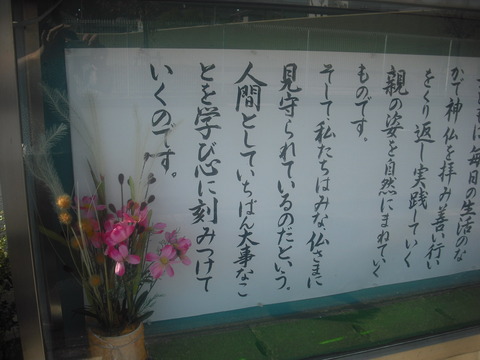 に毎日の生活のな
かで神仏を拝み善い行い
をくり返し実践していく
親の姿を自然にまねていく
ものです。
そして私たちはみな、仏さまに
見守られているのだという、
人間としていちばん大事なこ
とを学び心に刻みつけて
いくのです。